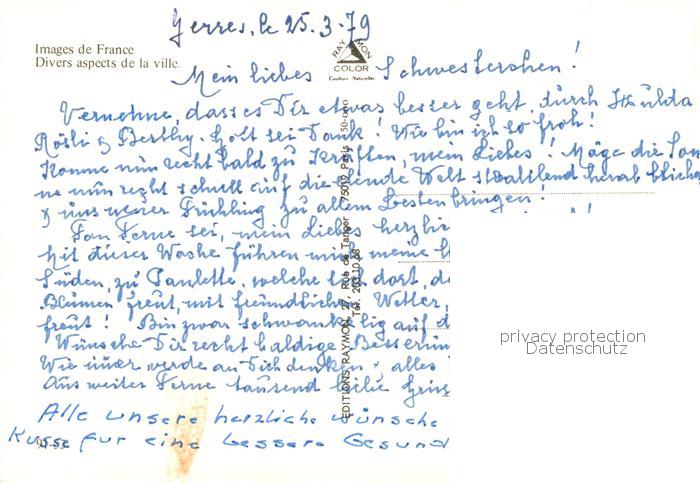 Yerres, le 25.3.79
Images de France
Divers aspects de la ville.
RAYMON
COLOR
Couleurs Naturelles
Mein liebes Schwesterchen!
Vernehme, dass es Dir etwas besser geht, durch Hulda
Rösli & Berthy. Gott sei Dank! Wie bin ich so froh!
Komme nun recht bald zu Kräften, mein Liebes! Möge die Son
ne nun recht schnell auf die Welt strahlend herab blicken
& uns neuer Frühling zu allem Besten bringen!
Von Ferne sei, mein Liebes herzlic
Mit dieser Woche führen mich meine
Süden, zu Paulette, welche sich dort, de
Blumen freut, mit freundliche Wetter,
freut! Bin zwar schwankelig auf d
Wünsche Dir recht baldige Besserun
Wie immer werde an Dich denken & alles
Aus weiter Ferne tausend liebe Grüs
Alle unsere herzliche wünsche
Kusse fur eine bessere Gesund
EDITIONS RAYMON, 27, Rue de Tanger 75019 Paris
Tél. 203.10.68
privacy protection
Datenschutz